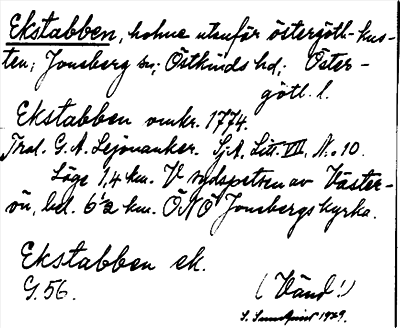 Ekstabben, holme utanför östergötl. kus-
ten; Jonsberg sn; Östkinds hd; Öster-
götl. l.
Ekstabben omkr. 1774.
Tral. G. A. Lejonanker. Sj. A. Litt. VII, N:o 10.
Läge 1,4 km. V sydspetsen av Väster-
ön, bel. 6½ km. ÖNÖ Jonsbergs kyrka.
Ekstabben ek.
G. 56.
(Vänd!)
S. 1929.